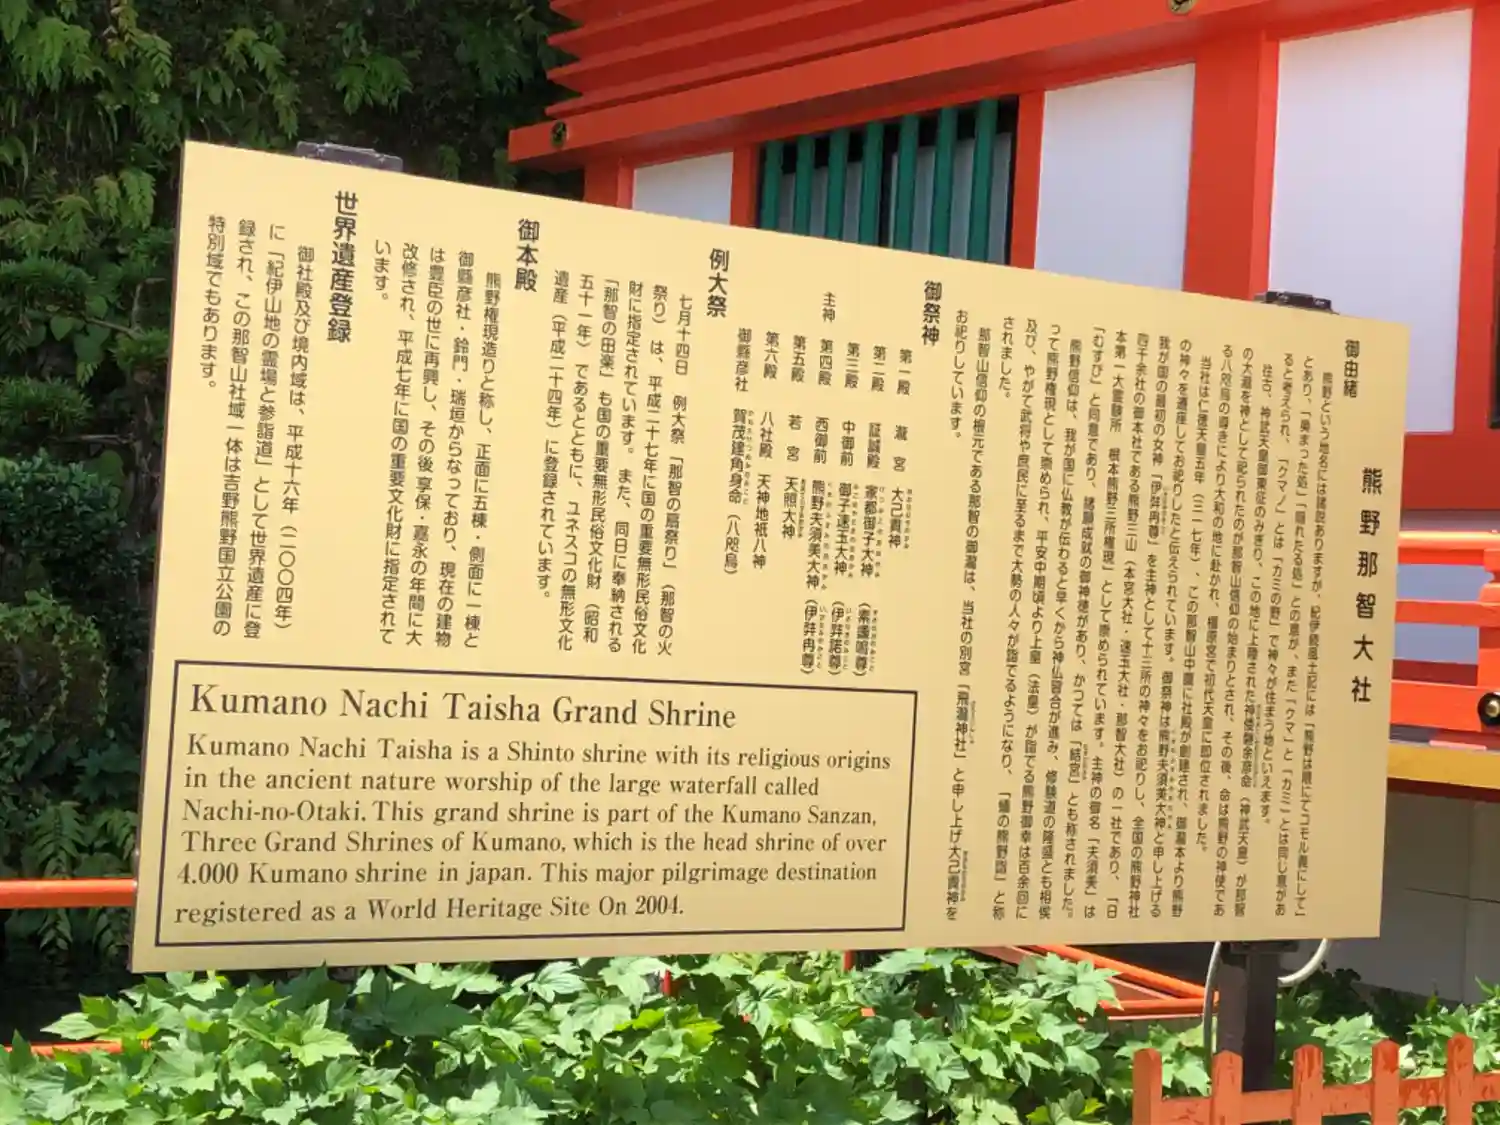 熊野那智大社
御由緒
熊野という地名には諸説ありますが、紀伊続風土記には「熊野は隈にてコモル義にして」
とあり、「奥まった処」「隠れたる処」との意が、また「クマ」と「カミ」とは同じ意があ
ると考えられ、「クマノ」とは「カミの野」で神々が住まう地といえます。
往古、神武天皇御東征のみぎり、この地に上陸された神倭磐余彦命（神武天皇）が那智
の大瀧を神として祀られたのが那智山信仰の始まりとされ、その後、命は熊野の神使であ
る八咫烏の導きにより大和の地に赴かれ、橿原宮で初代天皇に即位されました。
当社は仁徳天皇五年（三一七年）、この那智山中腹に社殿が創建され、御瀧本より熊野
の神々を遷座してお祀りしたと伝えられています。御祭神は熊野夫須美大神と申し上げる
我が国の最初の女神「伊弉冉尊」を主神として十三所の神々をお祀りし、全国の熊野神社
四千余社の御本社である熊野三山（本宮大社・速玉大社・那智大社）の一社であり、「日
本第一大霊験所 根本熊野三所権現」として崇められています。主神の御名「夫須美」は
「むすび」と同意であり、諸願成就の御神徳があり、かつては「結宮」とも称されました。
熊野信仰は、我が国に仏教が伝わると早くから神仏習合が進み、修験道の隆盛とも相俟
って熊野権現として崇められ、平安中期頃より上皇（法皇）が詣でる熊野御幸は百余回に
及び、やがて武将や庶民に至るまで大勢の人々が詣でるようになり、「蟻の熊野詣」と称
されました。
那智山信仰の根元である那智の御瀧は、当社の別宮「飛瀧神社」と申し上げ大己貴神を
お祀りしています。
御祭神
第一殿 瀧宮 大己貴神
第二殿 証誠殿 家都御子大神（素盞嗚尊）
第三殿 中御前 御子速玉大神（伊弉諾尊）
主神 第四殿 西御前 熊野夫須美大神（伊弉冉尊）
第五殿 若宮 天照大神
第六殿 八社殿 天神地祇八神
御縣彦社 賀茂建角身命（八咫烏）
例大祭
七月十四日 例大祭「那智の扇祭り」（那智の火
祭り）は、平成二十七年に国の重要無形民俗文化
財に指定されています。また、同日に奉納される
「那智の田楽」も国の重要無形民俗文化財（昭和
五十一年）であるとともに、ユネスコの無形文化
遺産（平成二十四年）に登録されています。
御本殿
熊野権現造りと称し、正面に五棟・側面に一棟と
御縣彦社・鈴門・瑞垣からなっており、現在の建物
は豊臣の世に再興し、その後享保・嘉永の年間に大
改修され、平成七年に国の重要文化財に指定されて
います。
世界遺産登録
御社殿及び境内域は、平成十六年（二〇〇四年）
に「紀伊山地の霊場と参詣道」として世界遺産に登
録され、この那智山社域一体は吉野熊野国立公園の
特別域でもあります。
Kumano Nachi Taisha Grand Shrine
Kumano Nachi Taisha is a Shinto shrine with its religious origins
in the ancient nature worship of the large waterfall called
Nachi-no-Otaki. This grand shrine is part of the Kumano Sanzan,
Three Grand Shrines of Kumano, which is the head shrine of over
4.000 Kumano shrine in japan. This major pilgrimage destination
registered as a World Heritage Site On 2004.